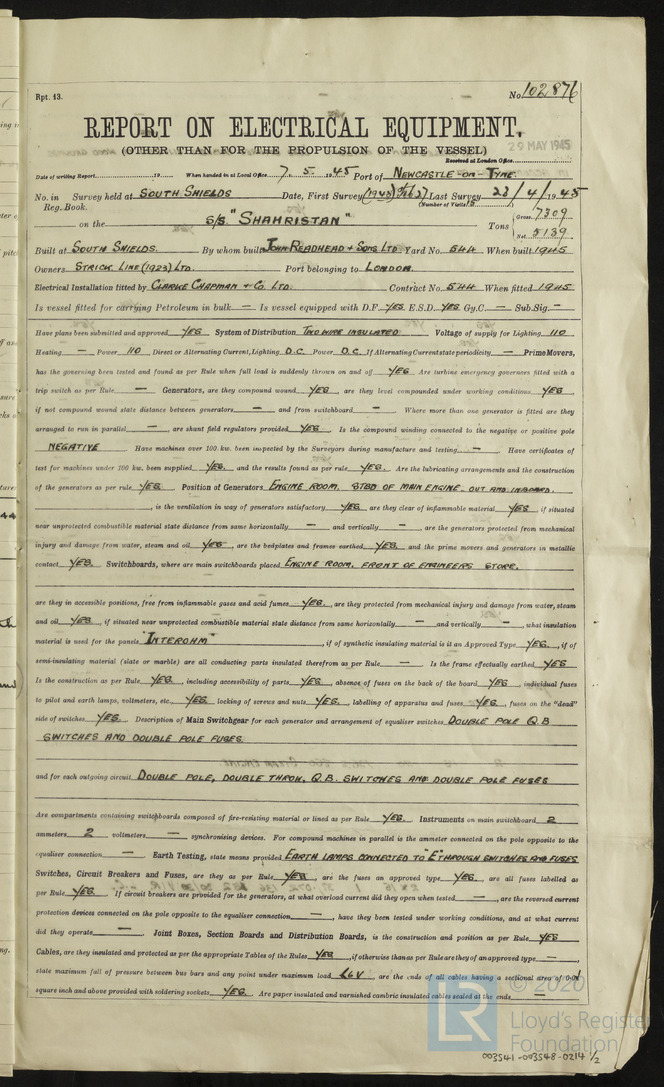 Rpt. 13.
No. 102876
REPORT ON ELECTRICAL EQUIPMENT.
(OTHER THAN FOR THE PROPULSION OF THE VESSEL)
29 MAY 1945
Received at London Office
Date of writing Report 19 When handed in at Local Office 7. 5. 1945 Port of NEWCASTLE-ON-TYNE.
No. in Survey held at SOUTH SHIELDS Date, First Survey (1943) 27 Last Survey 23/4/1945
Reg. Book. (Number of Visits
on the S/S. "SHAHRISTAN" Tons { Gross 7309
Net 5139
Built at SOUTH SHIELDS. By whom built JOHN READHEAD & SONS LTD. Yard No. 544 When built 1945
Owners STRICK LINE (1923) LTD. Port belonging to LONDON.
Electrical Installation fitted by CLARKE CHAPMAN & CO. LTD. Contract No. 544 When fitted 1945
Is vessel fitted for carrying Petroleum in bulk — Is vessel equipped with D.F. YES. E.S.D. YES Gy.C. — Sub.Sig. —
Have plans been submitted and approved YES System of Distribution TWO WIRE INSULATED Voltage of supply for Lighting 110
Heating — Power 110 Direct or Alternating Current, Lighting D.C. Power D.C. If Alternating Current state periodicity — Prime Movers,
has the governing been tested and found as per Rule when full load is suddenly thrown on and off YES Are turbine emergency governors fitted with a
trip switch as per Rule — Generators, are they compound wound YES, are they level compounded under working conditions YES,
if not compound wound state distance between generators — and from switchboard — Where more than one generator is fitted are they
arranged to run in parallel —, are shunt field regulators provided YES. Is the compound winding connected to the negative or positive pole
NEGATIVE. Have machines over 100 kw. been inspected by the Surveyors during manufacture and testing — Have certificates of
test for machines under 100 kw. been supplied YES. and the results found as per rule YES. Are the lubricating arrangements and the construction
of the generators as per rule YES. Position of Generators ENGINE ROOM. STBD OF MAIN ENGINE. OUT AND INBOARD.
, is the ventilation in way of generators satisfactory YES are they clear of inflammable material YES, if situated
near unprotected combustible material state distance from same horizontally — and vertically —, are the generators protected from mechanical
injury and damage from water, steam and oil YES, are the bedplates and frames earthed YES and the prime movers and generators in metallic
contact YES. Switchboards, where are main switchboards placed ENGINE ROOM. FRONT OF ENGINEERS STORE.
are they in accessible positions, free from inflammable gases and acid fumes YES., are they protected from mechanical injury and damage from water, steam
and oil YES, if situated near unprotected combustible material state distance from same horizontally — and vertically —, what insulation
material is used for the panels "INTEROHM", if of synthetic insulating material is it an Approved Type YES., if of
semi-insulating material (slate or marble) are all conducting parts insulated therefrom as per Rule — Is the frame effectually earthed YES
Is the construction as per Rule YES, including accessibility of parts YES, absence of fuses on the back of the board YES, individual fuses
to pilot and earth lamps, voltmeters, etc. YES. locking of screws and nuts YES. labelling of apparatus and fuses YES., fuses on the "dead"
side of switches YES. Description of Main Switchgear for each generator and arrangement of equaliser switches DOUBLE POLE Q.B
SWITCHES AND DOUBLE POLE FUSES.
and for each outgoing circuit DOUBLE POLE, DOUBLE THROW, Q.B. SWITCHES AND DOUBLE POLE FUSES
Are compartments containing switchboards composed of fire-resisting material or lined as per Rule YES. Instruments on main switchboard 2
ammeters 2 voltmeters — synchronising devices. For compound machines in parallel is the ammeter connected to the pole opposite to the
equaliser connection — Earth Testing, state means provided EARTH LAMPS CONNECTED TO "E" THROUGH SWITCHES AND FUSES
Switches, Circuit Breakers and Fuses, are they as per Rule YES, are the fuses an approved type YES, are all fuses labelled as
per Rule YES. If circuit breakers are provided for the generators, at what overload current did they open when tested —, are the reversed current
protection devices connected on the pole opposite to the equaliser connection —, have they been tested under working conditions, and at what current
did they operate — Joint Boxes, Section Boards and Distribution Boards, is the construction and position as per Rule YES
Cables, are they insulated and protected as per the appropriate Tables of the Rules YES, if otherwise than as per Rule are they of an approved type —,
state maximum fall of pressure between bus bars and any point under maximum load 1.6V, are the ends of all cables having a sectional area of 0.01
square inch and above provided with soldering sockets YES. Are paper insulated and varnished cambric insulated cables sealed at the ends —
© 2020
LR
Lloyd's Register
Foundation
003541-003548-0214 1/2